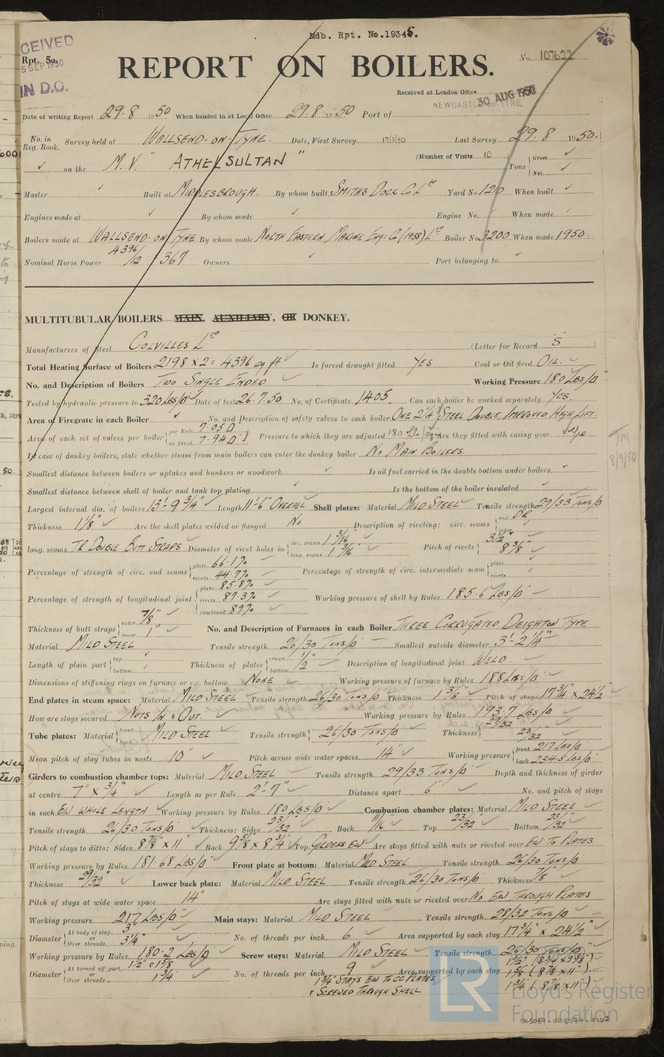 Mdb. Rpt. No.19345.
Rpt. 5a.
No. 107622
REPORT ON BOILERS.
Received at London Office
30 AUG 1950
Date of writing Report 29.8 1950 When handed in at Local Office 29.8 1950 Port of NEWCASTLE-ON-TYNE
No. in Reg. Book. Survey held at WALLSEND-ON-TYNE. Date, First Survey Last Survey 29-8 1950.
on the M.V. "ATHELSULTAN" (Number of Visits 10) Tons Gross Net
Master Built at MIDDLESBROUGH. By whom built SMITHS DOCK Co. Ltd Yard No. When built
Engines made at By whom made Engine No. When made
Boilers made at WALLSEND-ON-TYNE By whom made NORTH EASTERN MARINE ENG. Co (1938) Ltd Boiler No. 3200 When made 1950.
Nominal Horse Power 4396/12 367 Owners Port belonging to
MULTITUBULAR BOILERS MAIN, AUXILIARY, OR DONKEY.
Manufacturers of Steel COLVILLES Ltd (Letter for Record S
Total Heating Surface of Boilers 2198 x 2 = 4396 sq ft Is forced draught fitted YES Coal or Oil fired OIL.
No. and Description of Boilers TWO SINGLE ENDED Working Pressure 180 LBS/□"
Tested by hydraulic pressure to 320 LBS/□" Date of test 26.7.50 No. of Certificate 1405 Can each boiler be worked separately YES.
Area of Firegrate in each Boiler No. and Description of safety valves to each boiler ONE 2¼" STEEL DOUBLE, IMPROVED HIGH LIFT.
Area of each set of valves per boiler per Rule 7.05□" as fitted 7.94□" Pressure to which they are adjusted Are they fitted with easing gear Yes
In case of donkey boilers, state whether steam from main boilers can enter the donkey boiler NO MAIN BOILERS.
Smallest distance between boilers or uptakes and bunkers or woodwork Is oil fuel carried in the double bottom under boilers
Smallest distance between shell of boiler and tank top plating Is the bottom of the boiler insulated
Largest internal dia. of boilers 13'-9¾" Length 11'-6" OVERALL Shell plates: Material MILD STEEL Tensile strength 29/33 TONS/□
Thickness 1⅛" Are the shell plates welded or flanged NO Description of riveting: circ. seams end D.R.
long. seams TR DOUBLE BUTT STRAPS Diameter of rivet holes in circ. seams 1 3/16" long. seams 1 3/16 Pitch of rivets
Percentage of strength of circ. end seams plate 66.1% rivets 44.7% Percentage of strength of circ. intermediate seam plate rivets
Percentage of strength of longitudinal joint plate 85.8% rivets 87.3% combined 89% Working pressure of shell by Rules 185.6 LBS/□"
Thickness of butt straps outer 7/8" inner 1" No. and Description of Furnaces in each Boiler THREE CORRUGATED DEIGHTON TYPE
Material MILD STEEL Tensile strength 26/30 TONS/□ Smallest outside diameter 3'-2¼"
Length of plain part top bottom Thickness of plates crown bottom ½" Description of longitudinal joint WELD
Dimensions of stiffening rings on furnace or c.c. bottom NONE Working pressure of furnace by Rules 188 LBS/□"
End plates in steam space: Material MILD STEEL Tensile strength 26/30 TONS/□ Thickness Pitch of stays 17¾" x 24½"
How are stays secured NUTS IN & OUT. Working pressure by Rules 193.7 LBS/□
Tube plates: Material front back MILD STEEL Tensile strength 26/30 TONS/□ Thickness 29/32 23/32
Mean pitch of stay tubes in nests 10" Pitch across wide water spaces 14" Working pressure front 217 LBS/□" back 234.5 LBS/□"
Girders to combustion chamber tops: Material MILD STEEL Tensile strength 29/33 TONS/□" Depth and thickness of girder
at centre 7" x ¾" Length as per Rule 2'-7" Distance apart 6" No. and pitch of stays
in each EW WHOLE LENGTH Working pressure by Rules 180 LBS/□" Combustion chamber plates: Material MILD STEEL
Tensile strength 26/30 TONS/□" Thickness: Sides 23/32 Back 11/16 Top 23/32 Bottom 23/32
Pitch of stays to ditto: Sides 8⅞" x 11" Back Top GIRDERS EW Are stays fitted with nuts or riveted over EW TO PLATES
Working pressure by Rules 181.68 LBS/□" Front plate at bottom: Material MILD STEEL Tensile strength 26/30 TONS/□"
Thickness 29/32" Lower back plate: Material MILD STEEL Tensile strength 26/30 TONS/□" Thickness
Pitch of stays at wide water space 14" Are stays fitted with nuts or riveted over NO EW THROUGH PLATES
Working pressure 217 LBS/□" Main stays: Material MILD STEEL Tensile strength 28/32 TONS/□"
Diameter At body of stay or Over threads 3" 3¼" No. of threads per inch 6 Area supported by each stay 17¾" x 24½"
Working pressure by Rules 180.2 LBS/□" Screw stays: Material MILD STEEL Tensile strength 26/30 TONS/□"
Diameter At turned off part or Over threads 1¾ No. of threads per inch 9 Area supported by each stay
1¾ STAYS EW TO CC PLATES
& SCREWED THROUGH SHELL
Lloyd's Register
Foundation